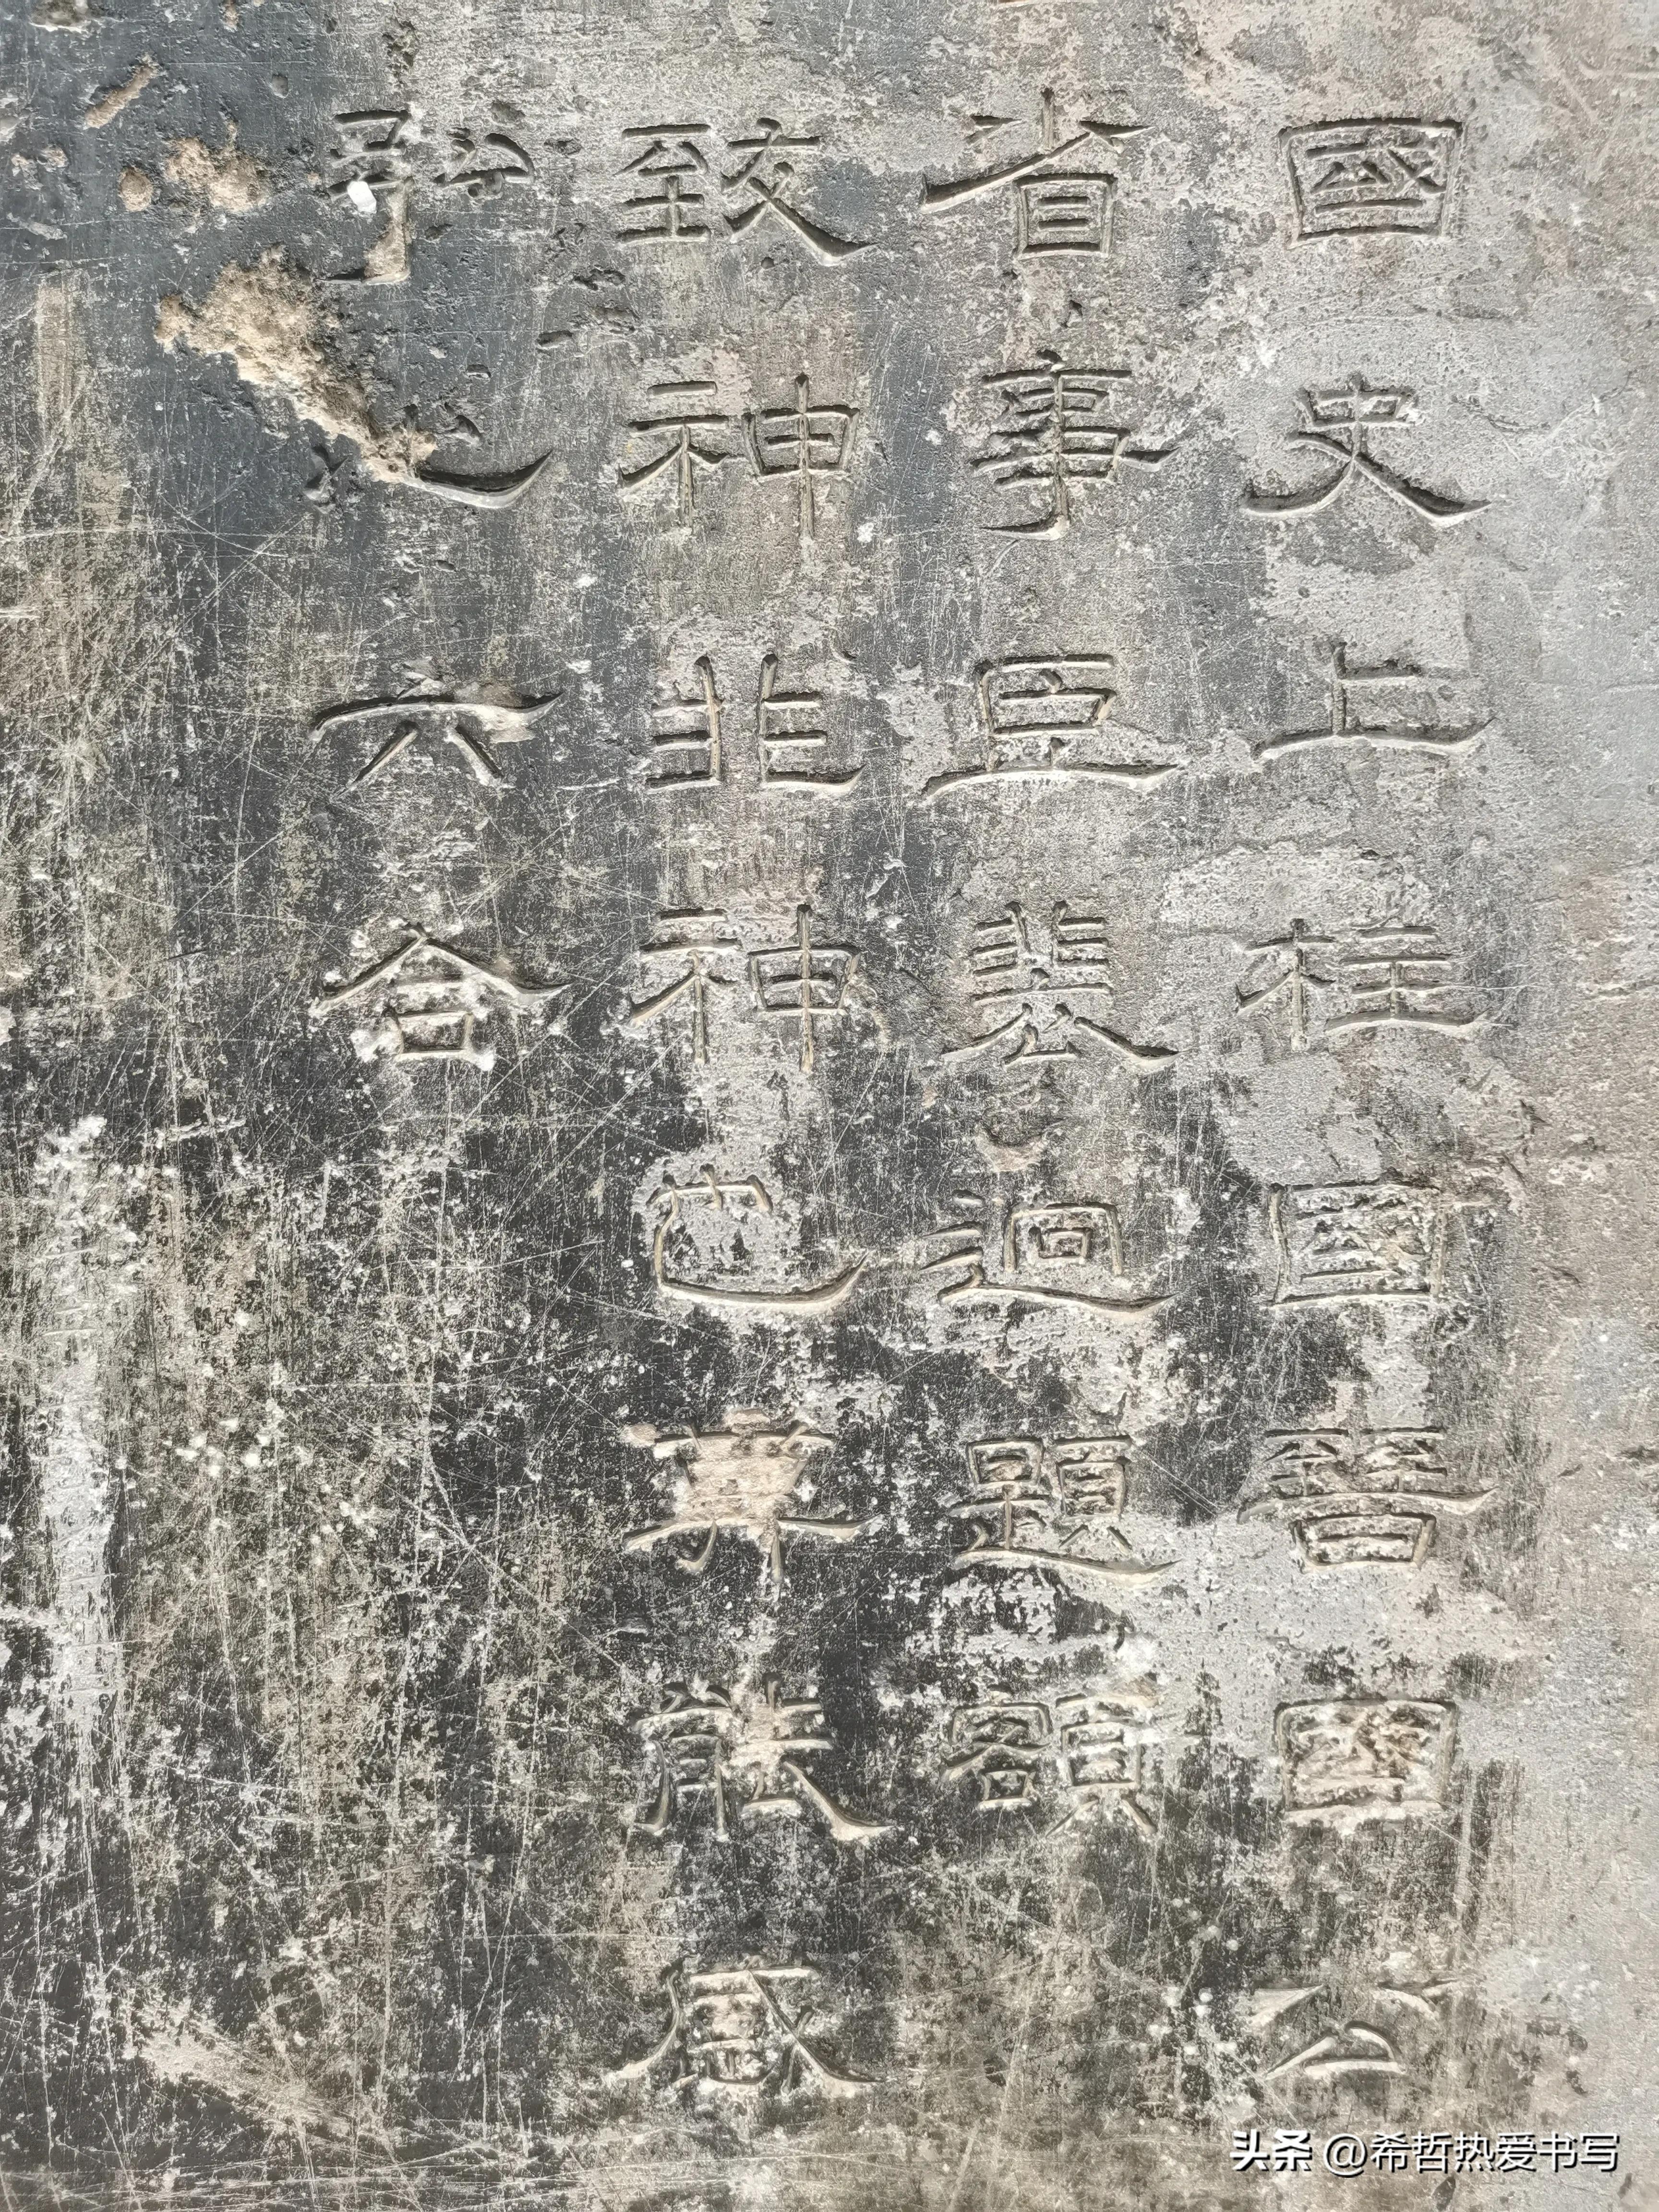 國史上柱國晉國公
省事臣裴迥題額
致神非神也能
之六合
头条 @希哲热爱书写